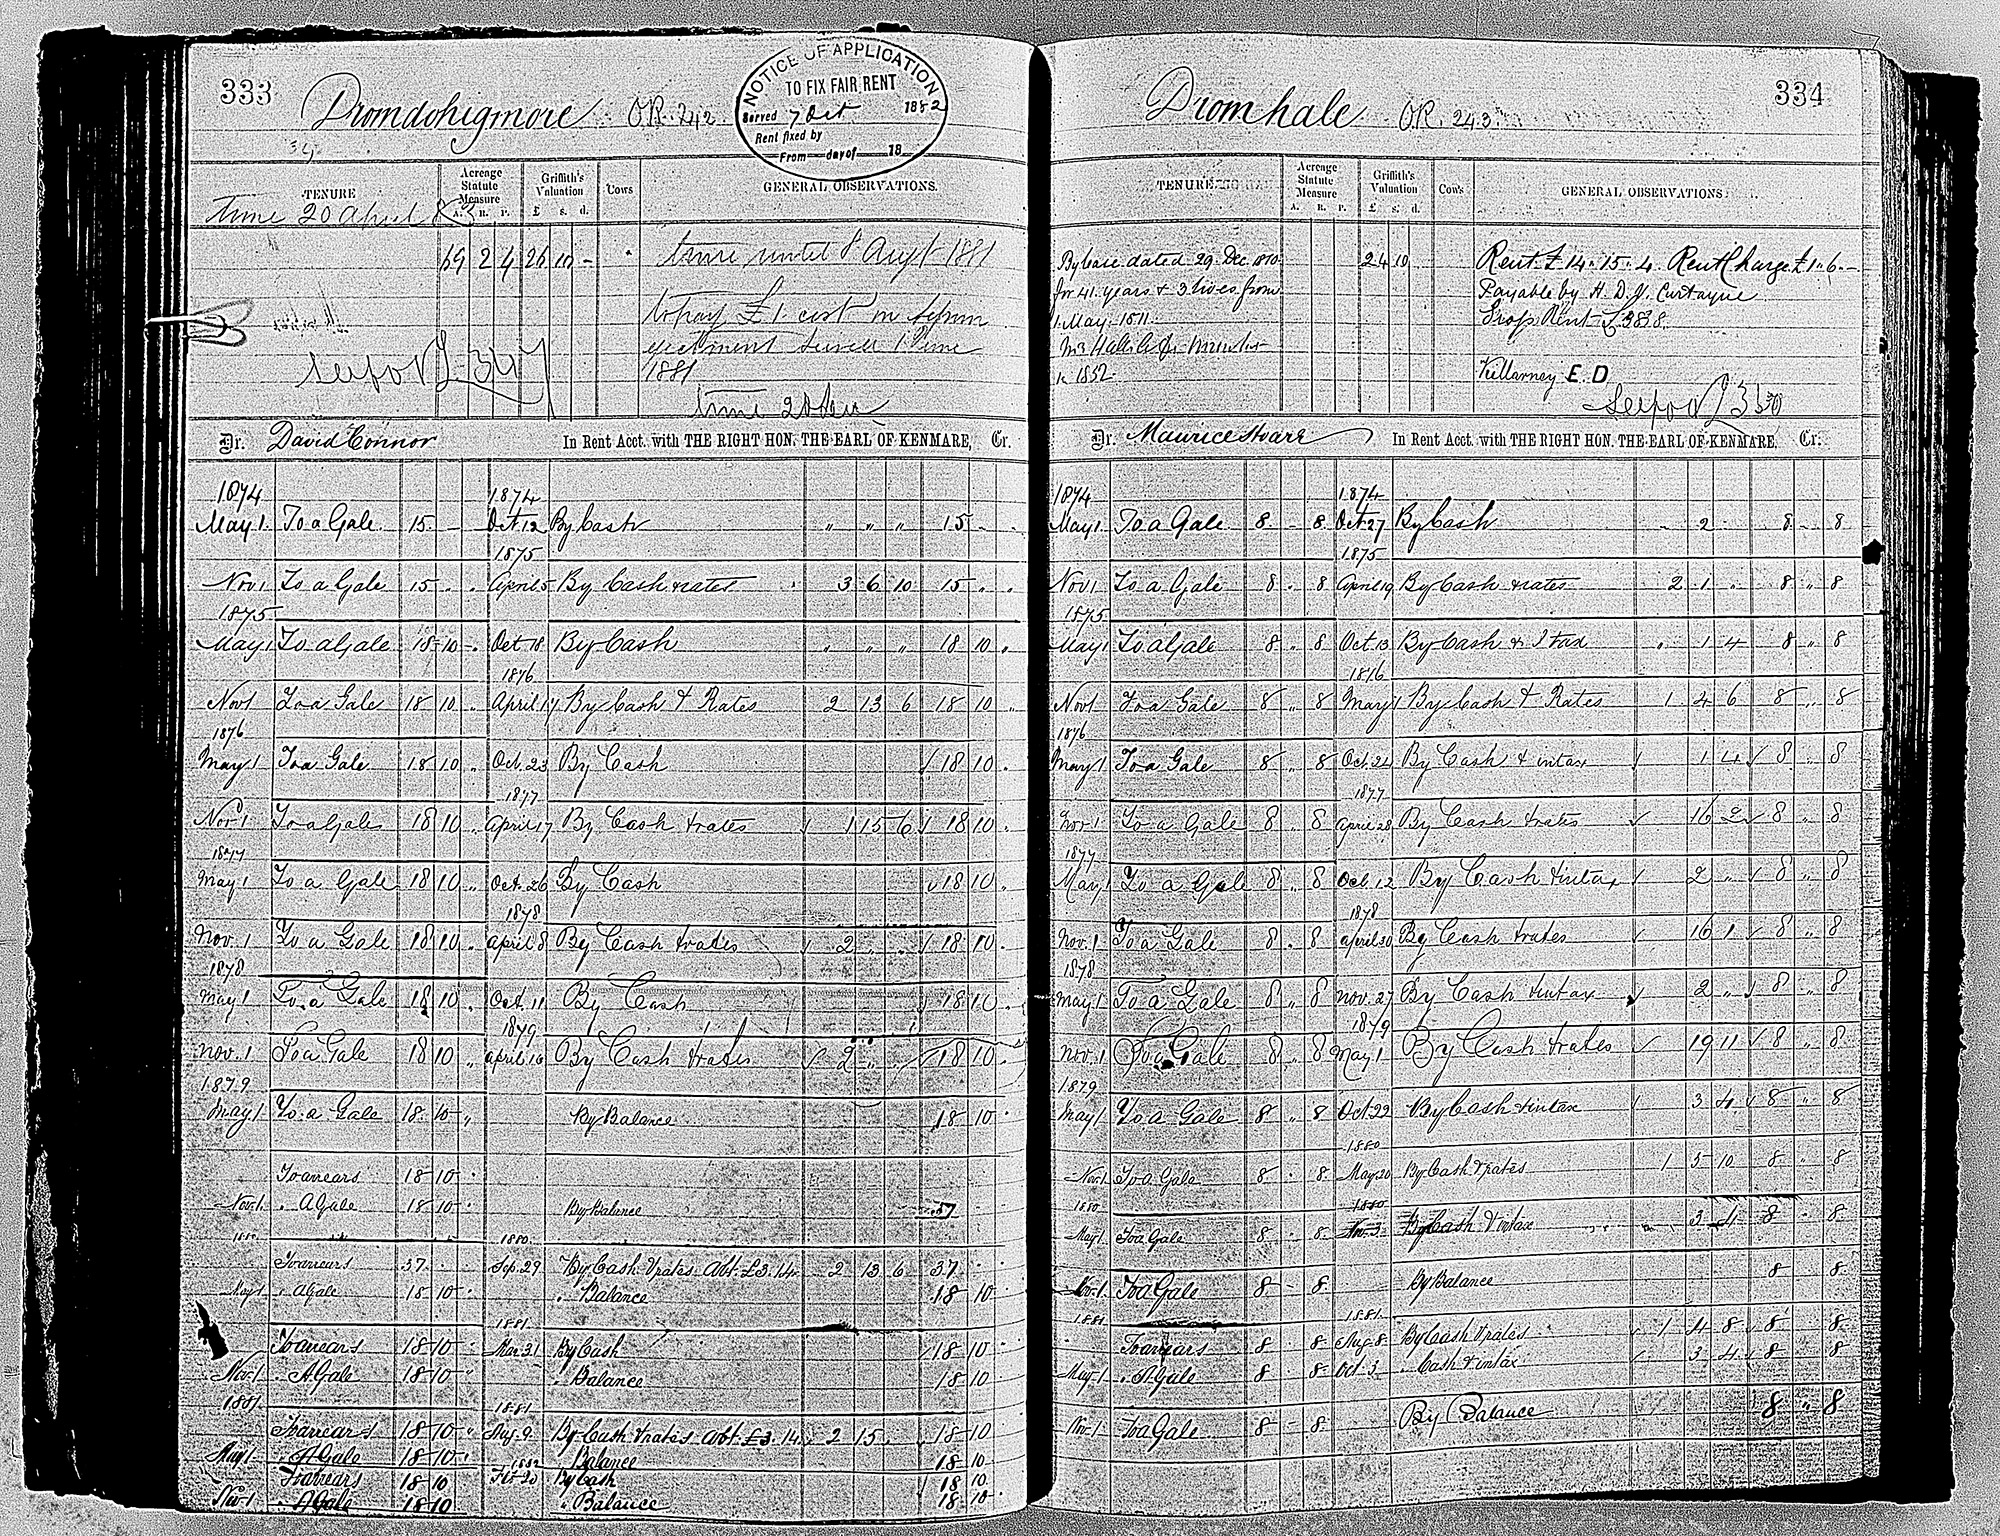 333
Dromdohigmore OR. 242
NOTICE OF APPLICATION
TO FIX FAIR RENT
Served 7 Oct 1882
Rent fixed by
From day of 18
TENURE
Acreage Statute Measure
A. R. P.
Griffith's Valuation
£ s. d.
Cows
GENERAL OBSERVATIONS.
Time 20 April 83
69 2 4 26 10 -
time until 8 Augt 1881
to pay £1 cost on
ejectment 1 June
1881
See fol 347
Dr. David Connor In Rent Acct. with THE RIGHT HON. THE EARL OF KENMARE, Cr.
1874 1874
May 1 To a Gale 15 - - Oct 12 By Cash " " " 15 - -
1875
Nov 1 To a Gale 15 . . April 5 By Cash & rates 3 6 10 15 " "
1875
May 1 To a Gale 18 10 - Oct 18 By Cash " " " 18 10 "
1876
Nov 1 To a Gale 18 10 " April 17 By Cash & Rates 2 13 6 18 10 "
1876
May 1 To a Gale 18 10 " Oct. 23 By Cash 18 10 "
1877
Nov 1 To a Gale 18 10 " April 17 By Cash & rates 1 15 6 18 10 "
1877
May 1 To a Gale 18 10 " Oct. 26 By Cash 18 10 "
1878
Nov. 1 To a Gale 18 10 " April 8 By Cash & rates 2 " " 18 10 "
1878
May 1 To a Gale 18 10 " Oct. 11 By Cash 18 10 "
1879
Nov. 1 To a Gale 18 10 " April 16 By Cash & rates 2 " " 18 10 "
1879
May 1 To a Gale 18 10 " By Balance 18 10 "
To arrears 18 10 "
Nov. 1 " A Gale 18 10 " By Balance 37 " "
1880 1880
To arrears 37 " " Sep. 29 By Cash & rates Abt. £3.14 2 13 6 37 " "
May 1 " A Gale 18 10 " " Balance 18 10 "
1881
To arrears 18 10 " Mar. 31 By Cash 18 10 "
Nov. 1 " A Gale 18 10 " " Balance 18 10 "
1881 1881
To arrears 18 10 " Aug. 9 By Cash & rates Abt. £3.14 2 15 " 18 10
May 1 " A Gale 18 10 " " Balance 18 10
1882
To arrears 18 10 Feb 20 By Cash 18 10
Nov. 1 " A Gale 18 10 " Balance 18 10 "
334
Dromhale OR. 243
TENURE
Acreage Statute Measure
A. R. P.
Griffith's Valuation
£ s. d.
Cows
GENERAL OBSERVATIONS
By lease dated 29 Dec 1810
for 41 years & 3 lives from
1 May 1811
in 1852
24 10
Rent £14..15..4 Rent Charge £1..6..-
Payable by H. D. J. Curtayne
Killarney E.D
See fol 350
Dr. Maurice Hoare In Rent Acct. with THE RIGHT HON. THE EARL OF KENMARE, Cr.
1874 1874
May 1 To a Gale 8 - 8 Oct 27 By Cash - 2 - 8 - 8
1875
Nov 1 To a Gale 8 " 8 April 19 By Cash & rates 2 1 " 8 " 8
1875
May 1 To a Gale 8 " 8 Oct 13 By Cash & I tax " 1 4 8 " 8
1876
Nov 1 To a Gale 8 " 8 May 1 By Cash & Rates 1 4 6 8 " 8
1876
May 1 To a Gale 8 " 8 Oct. 24 By Cash & intax 1 4 8 " 8
1877
Nov 1 To a Gale 8 " 8 April 28 By Cash & rates 16 2 8 " 8
1877
May 1 To a Gale 8 " 8 Oct. 12 By Cash & intax 2 " 8 " 8
1878
Nov. 1 To a Gale 8 " 8 April 30 By Cash & rates 16 1 8 " 8
1878
May 1 To a Gale 8 " 8 Nov. 27 By Cash & intax 2 " 8 " 8
1879
Nov. 1 To a Gale 8 " 8 May 1 By Cash & rates 19 11 8 " 8
1879
May 1 To a Gale 8 " 8 Oct. 22 By Cash & intax 3 4 8 " 8
1880
Nov. 1 To a Gale 8 " 8 May 20 By Cash & rates 1 5 10 8 " 8
1880 1880
May 1 To a Gale 8 " 8 Nov. 3 By Cash & intax 3 4 8 " 8
Nov. 1 To a Gale 8 - 8 By Balance 8 " 8
1881 1881
To arrears 8 " 8 Aug. 8 By Cash & rates 1 4 8 8 " 8
May 1 " A Gale 8 " 8 Oct. 3 " Cash & intax 3 4 8 " 8
Nov. 1 To a Gale 8 - 8 By Balance 8 " 8